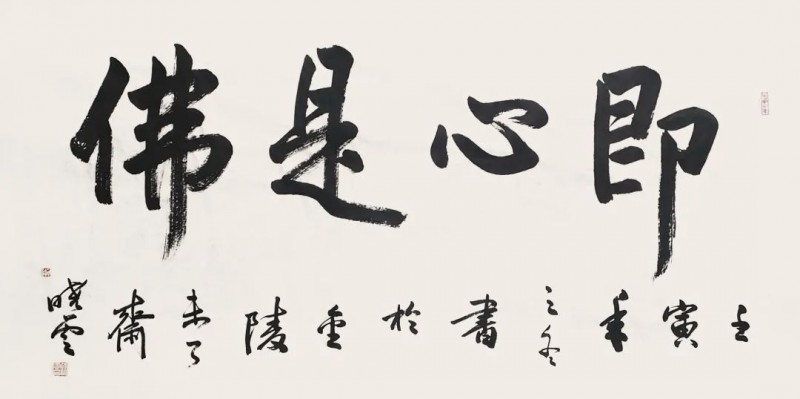 即心是佛
壬寅年之冬書於金陵未了齋
曉雲